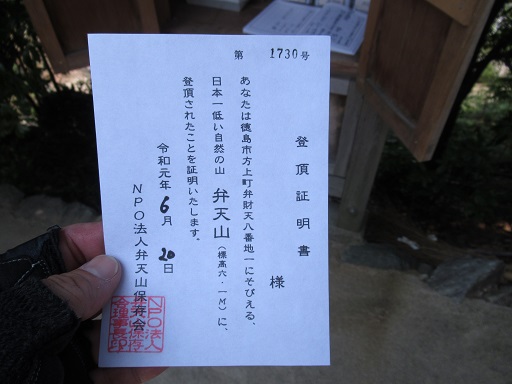 第 1730号
登頂証明書
様
あなたは徳島市方上町弁財天八番地一にそびえる、
日本一低い自然の山 弁天山(標高六・一M)に、
登頂されたことを証明いたします。
令和元年6月20日
NPO法人弁天山保存会